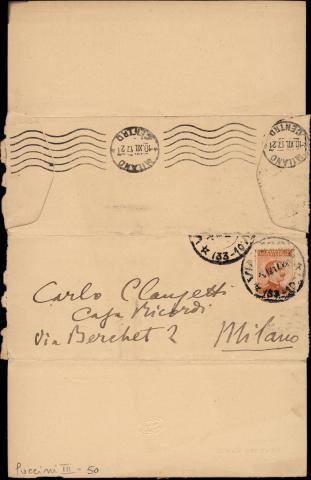 MILANO
CENTRO
10.XII.17 21
MILANO
CENTRO
10.XII.17 21
(33-10)
(33-10)
Carlo Clausetti
Casa Ricordi
Via Berchet 2 Milano
Puccini III - 50